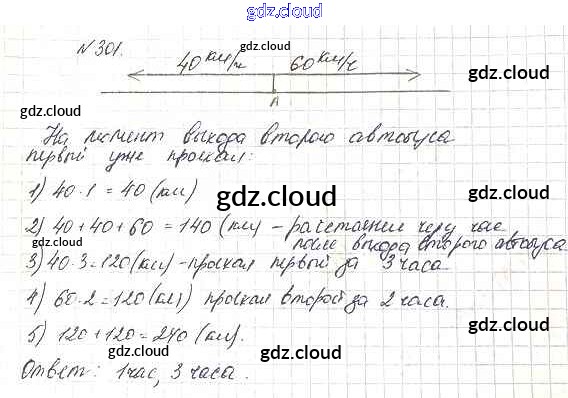 gdz.cloud
N 301.
gdz.cloud
40 км/ч 60 км/ч
gdz.cloud
A
gdz.cloud
gdz.cloud
На момент выхода второго автобуса
первый уже проехал:
gdz.cloud
1) 40 · 1 = 40 (км)
gdz.cloud
2) 40 + 40 + 60 = 140 (км) - расстояние через час
после выхода второго автобуса
gdz.cloud
gdz.cloud
3) 40 · 3 = 120 (км) - проехал первый за 3 часа
4) 60 · 2 = 120 (км) проехал второй за 2 часа.
gdz.cloud
5) 120 + 120 = 240 (км).
gdz.cloud
gdz.cloud
Ответ: 1 час, 3 часа.
gdz.cloud